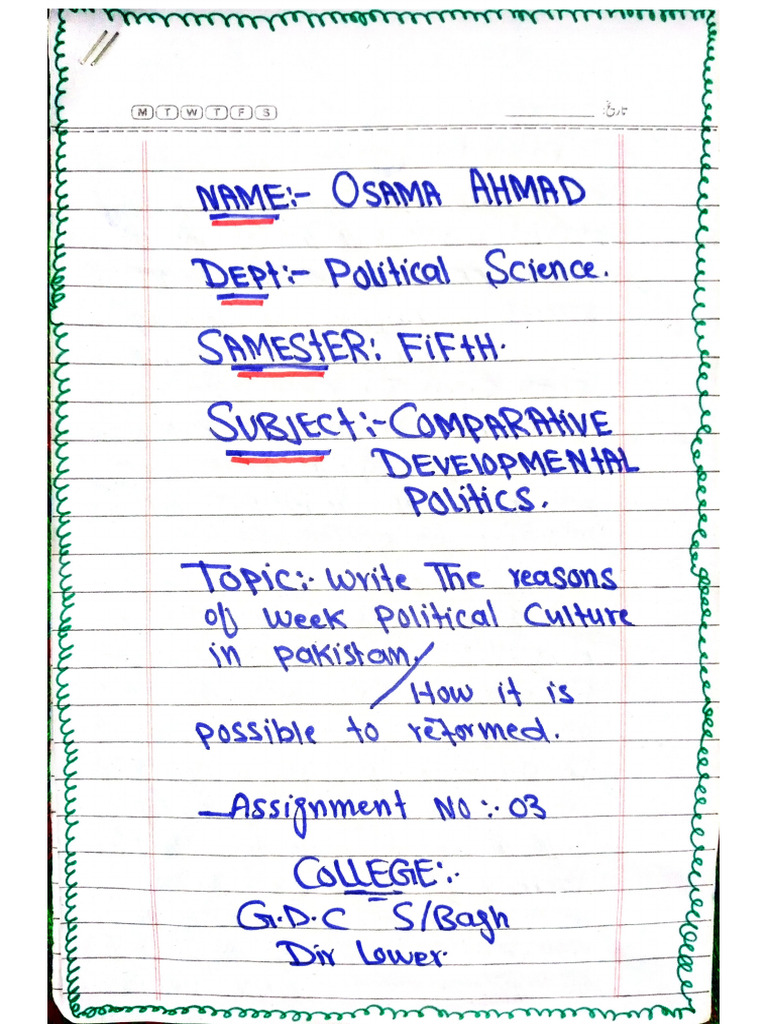 M T W T F S تاریخ
NAME:- OSAMA AHMAD
DEPT:- Political Science.
SAMESTER: FIFTH.
SUBJECT:- COMPARATIVE
DEVELOPMENTAL
POLITICS.
TOPIC:- Write The reasons
of week political Culture
in pakistan.
/ How it is
possible to reformed.
— Assignment NO:- 03
COLLEGE:-
G.D.C S/Bagh
Dir Lower.